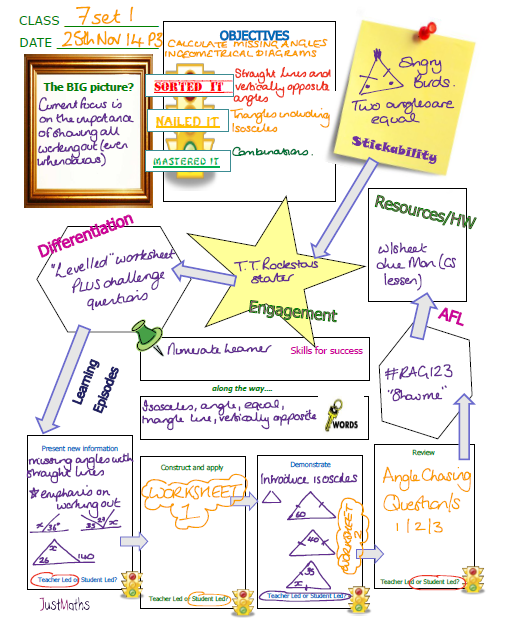 CLASS 7 set 1
DATE 25th Nov 14 P3
OBJECTIVES
CALCULATE MISSING ANGLES
IN GEOMETRICAL DIAGRAMS
The BIG picture?
Current focus is
on the importance
of showing all
working out (even
when obvious)
SORTED IT
Straight lines and
vertically opposite
angles
NAILED IT
Triangles including
Isosceles
MASTERED IT
Combinations.
Angry
Birds.
Two angles are
equal
Stickability
Differentiation
"Levelled" worksheet
PLUS challenge
questions
T.T. Rockstars
starter
Engagement
Resources/HW
w/sheet
due Mon (CS
lesson)
AFL
#RAG123
"Show me"
Learning
Episodes
Numerate Learner
Skills for success
along the way....
Isosceles, angle, equal,
triangle line, vertically opposite
KEY WORDS
Present new information
missing angles with
straight lines
☆ emphasis on
working out
x/36°
35 x
x
26 140
Teacher Led or Student Led?
Construct and apply
WORKSHEET
1
Teacher Led or Student Led?
Demonstrate
Introduce isosceles
60
40
35
x
WORKSHEET
2
Teacher Led or Student Led?
Review
Angle Chasing
Question/s
1/2/3
Teacher Led or Student Led?
JustMaths